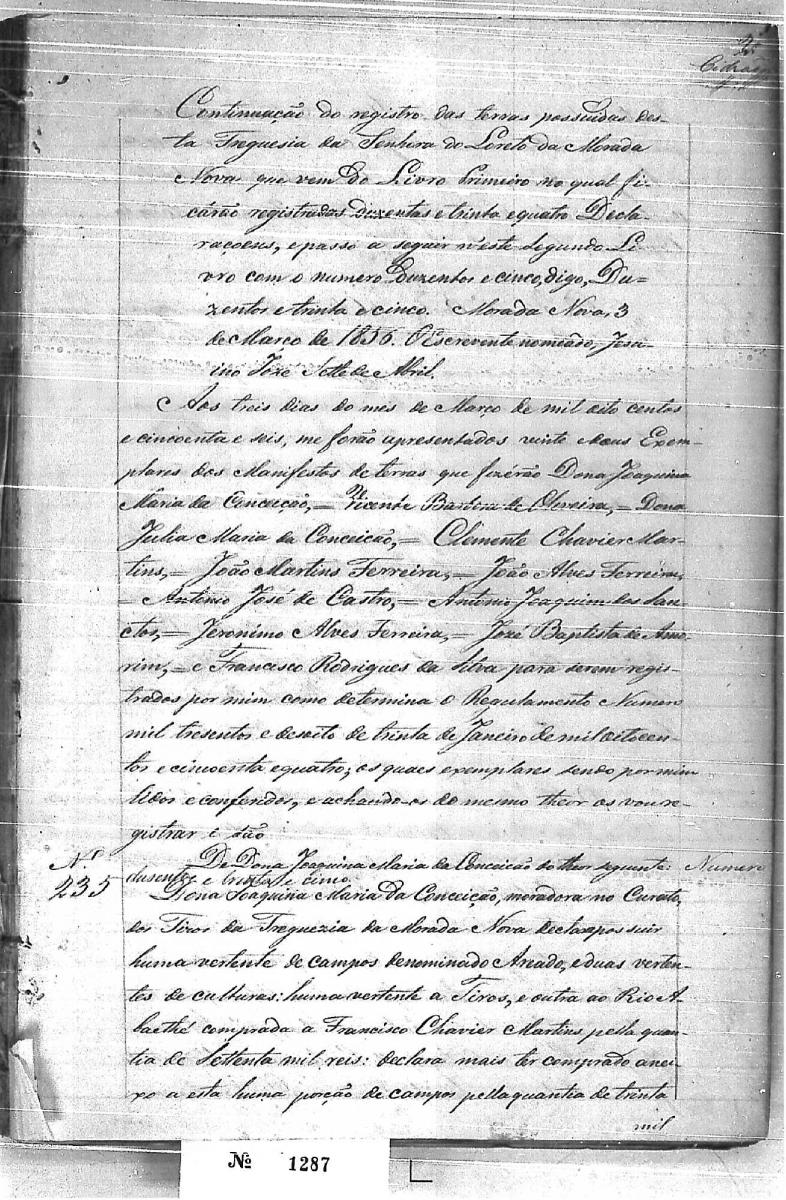 2
Continuação do registro das terras possuidas des-
ta Freguesia da Senhora do Loreto da Morada
Nova que vem do Livro Primeiro no qual fi-
cárão registradas duzentas e trinta e quatro Decla-
raçoens, e passo a seguir n'este Segundo Li-
vro com o numero Duzentos e cinco, digo, Du-
zentos e trinta e cinco. Morada Nova, 3
de Março de 1856. O Escrevente nomeado, Jesu-
ino José Sette de Abril.
Aos tres dias do mes de Março de mil oito centos
e cincoenta e seis, me forão apresentados vinte e dous Exem-
plares dos Manifestos de terras que fizérão Dona Joaquina
Maria da Conceição, = Vicente Barboza de Oliveira, = Dona
Julia Maria da Conceição, = Clemente Chavier Mar-
tins, = João Martins Ferreira, = João Alves Ferreira,
= Antonio José de Castro, = Antonio Joaquim dos San-
ctos, = Jeronimo Alves Ferreira, = Jozé Baptista de Amo-
rim, = e Francisco Rodrigues da Silva para serem regis-
trados por mim como determina o Regulamento Numero
mil tresentos e desoito de trinta de Janeiro de mil oito cen-
tos e cincoenta e quatro; os quaes exemplares sendo por mim
lidos e conferidos, e achando-os do mesmo theor os vou re-
gistrar e são
De Dona Joaquina Maria da Conceição do theor seguinte: Numero
dusentos e trinta e cinco
Nº 235
Dona Joaquina Maria da Conceição, moradora no Curato
dos Tiros da Freguezia da Morada Nova declara possuir
huma vertente de campos denominado Areado, e duas verten-
tes de culturas: huma vertente a Tiros, e outra ao Rio A-
baethé comprada a Francisco Chavier Martins pella quan-
tia de Settenta mil reis: declara mais ter comprado anei-
xo a esta huma porção de campos pella quantia de trinta
mil
Nº 1287